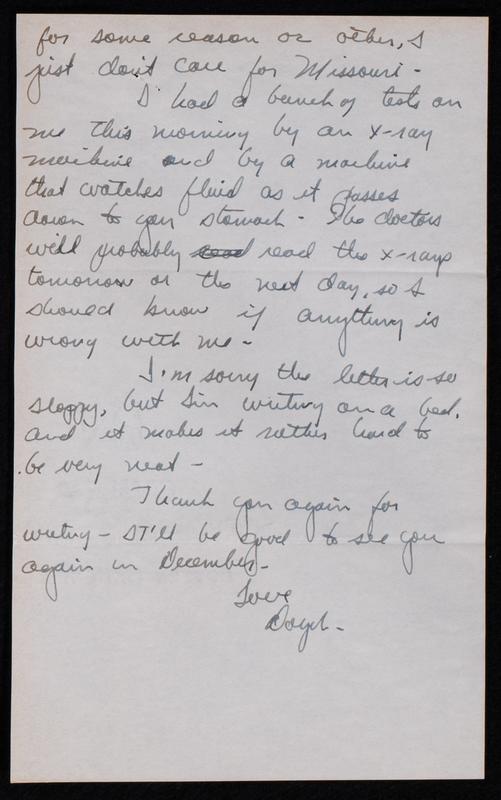 for some reason or other, I
just don't care for Missouri -
I had a bunch of tests on
me this morning by an x-ray
machine and by a machine
that watches fluid as it passes
down to your stomach - The doctors
will probably read the x-rays
tomorrow or the next day, so I
should know if anything is
wrong with me -
I'm sorry the letter is so
sloppy, but I'm writing on a bed,
and it makes it rather hard to
be very neat -
Thank you again for
writing - It'll be good to see you
again in December -
Love